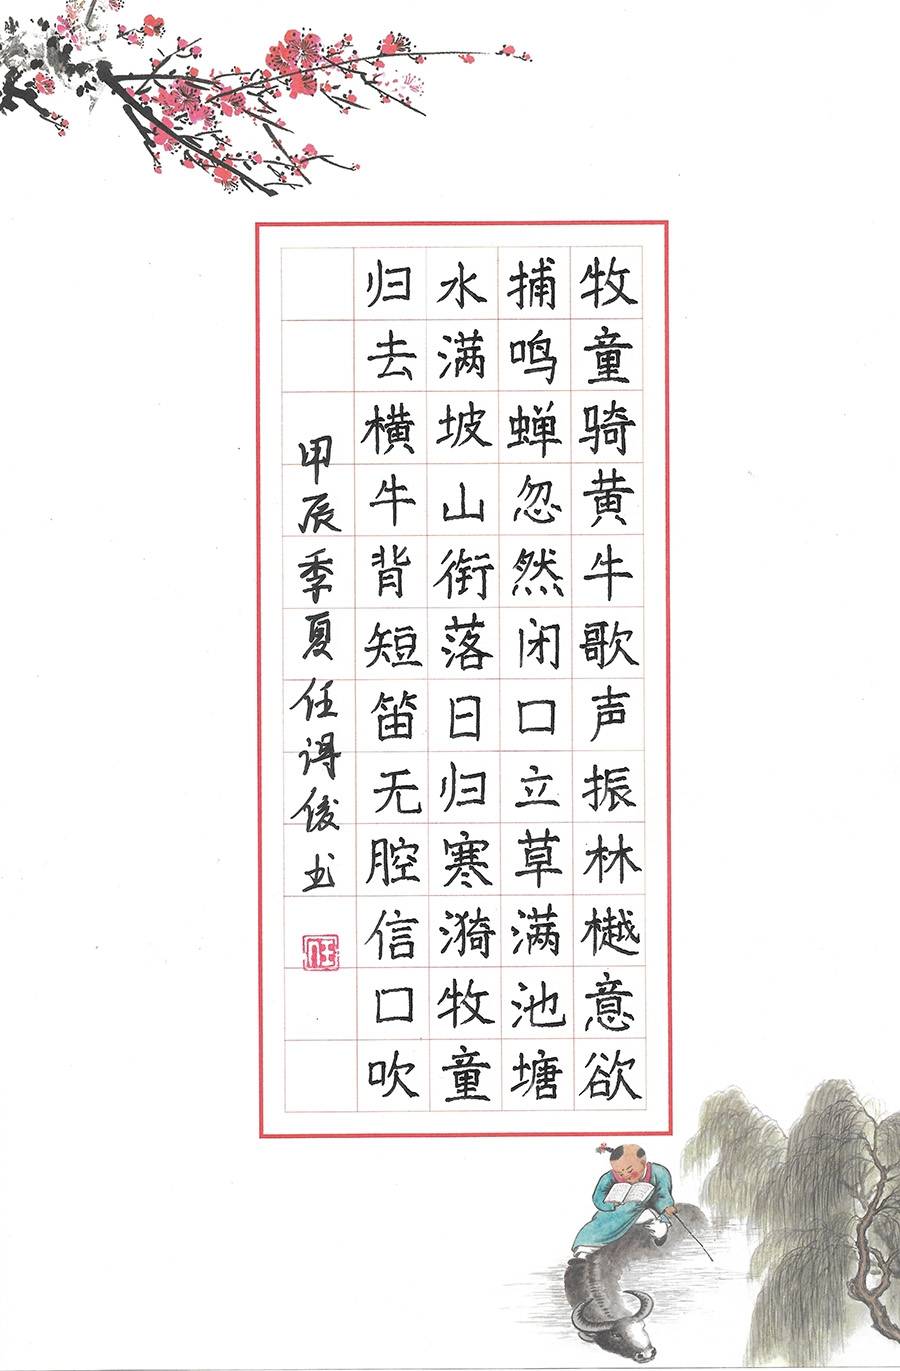 牧童骑黄牛歌声振林樾意欲
捕鸣蝉忽然闭口立草满池塘
水满坡山衔落日归寒漪牧童
归去横牛背短笛无腔信口吹
甲辰季夏任得俊书
任